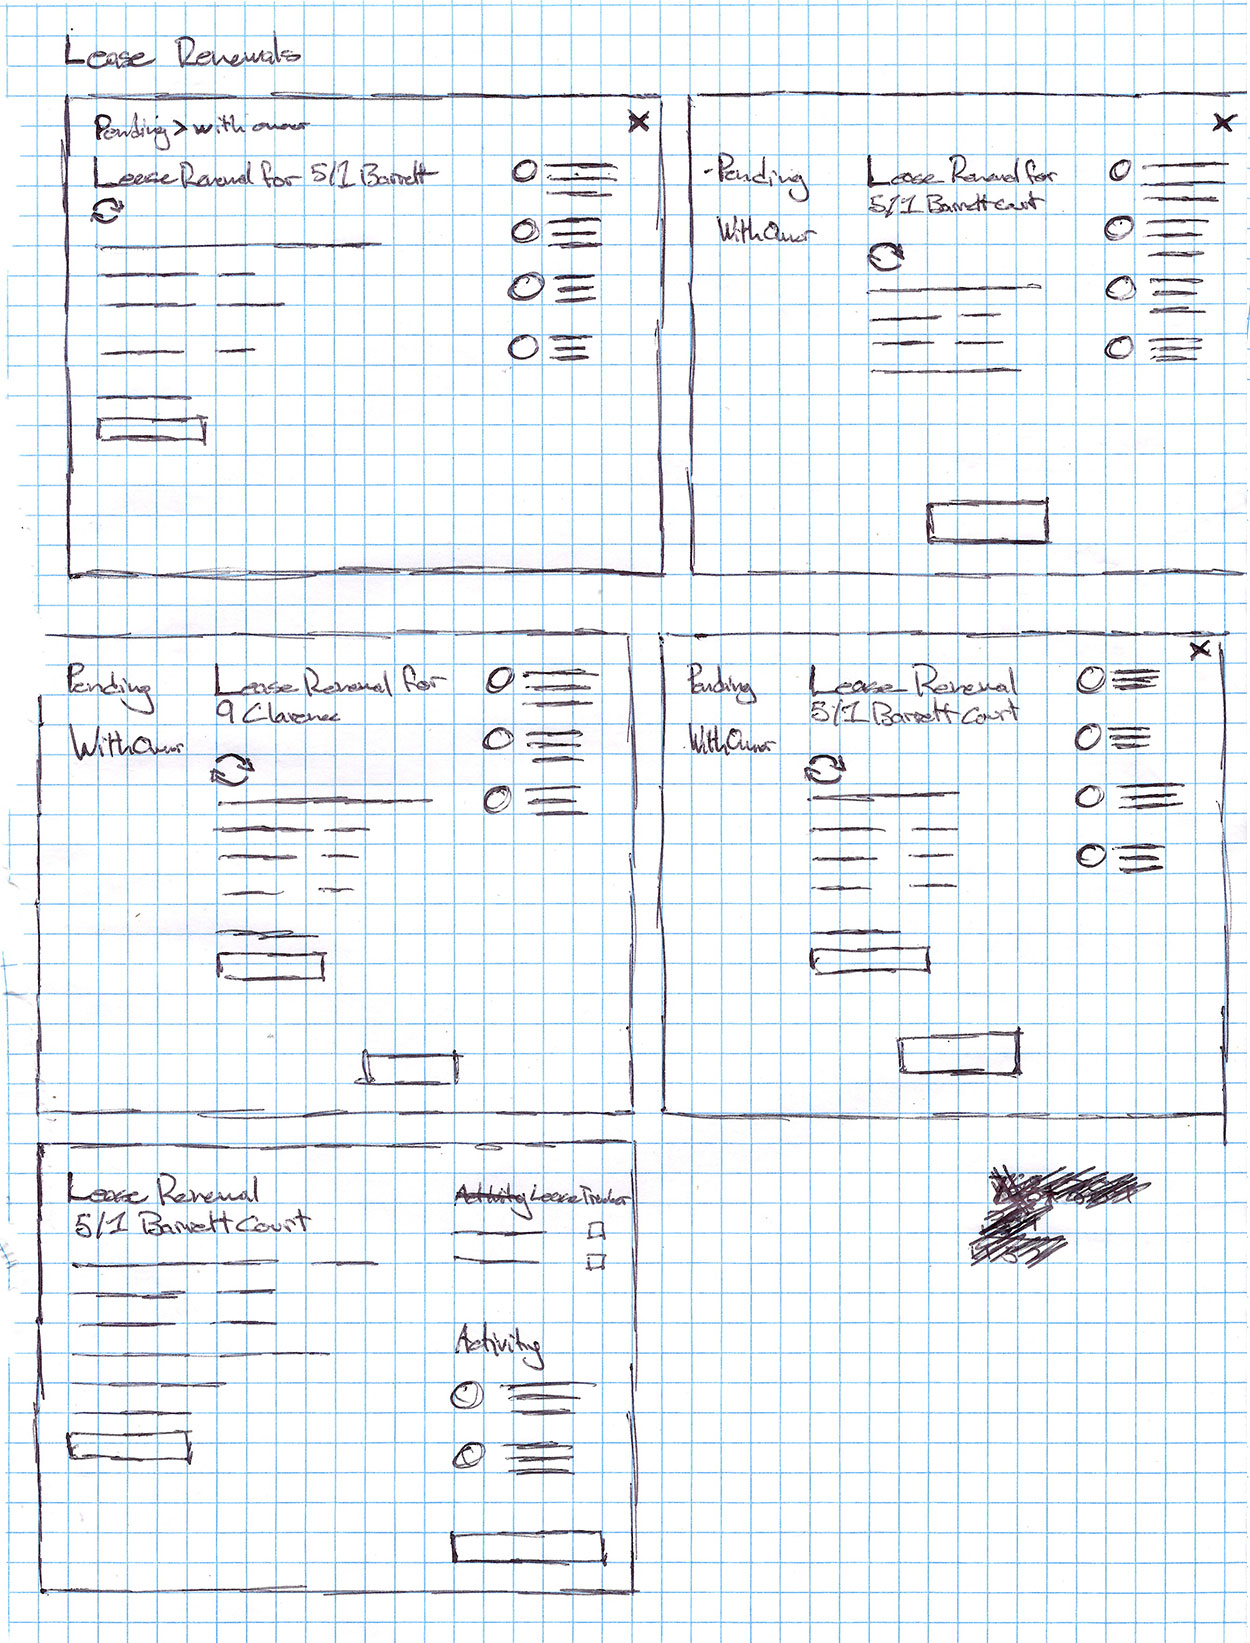 Lease Renewals
Pending > with owner
Lease Renewal for 5/1 Barrett
Pending
With Owner
Lease Renewal for
5/1 Barrett Court
Pending
With Owner
Lease Renewal for
9 Clarence
Pending
With Owner
Lease Renewal
5/1 Barrett Court
Lease Renewal
5/1 Barrett Court
Activity Lease Tracker
Activity